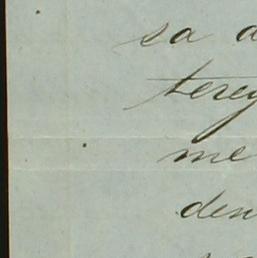 sa a
terey
me
den